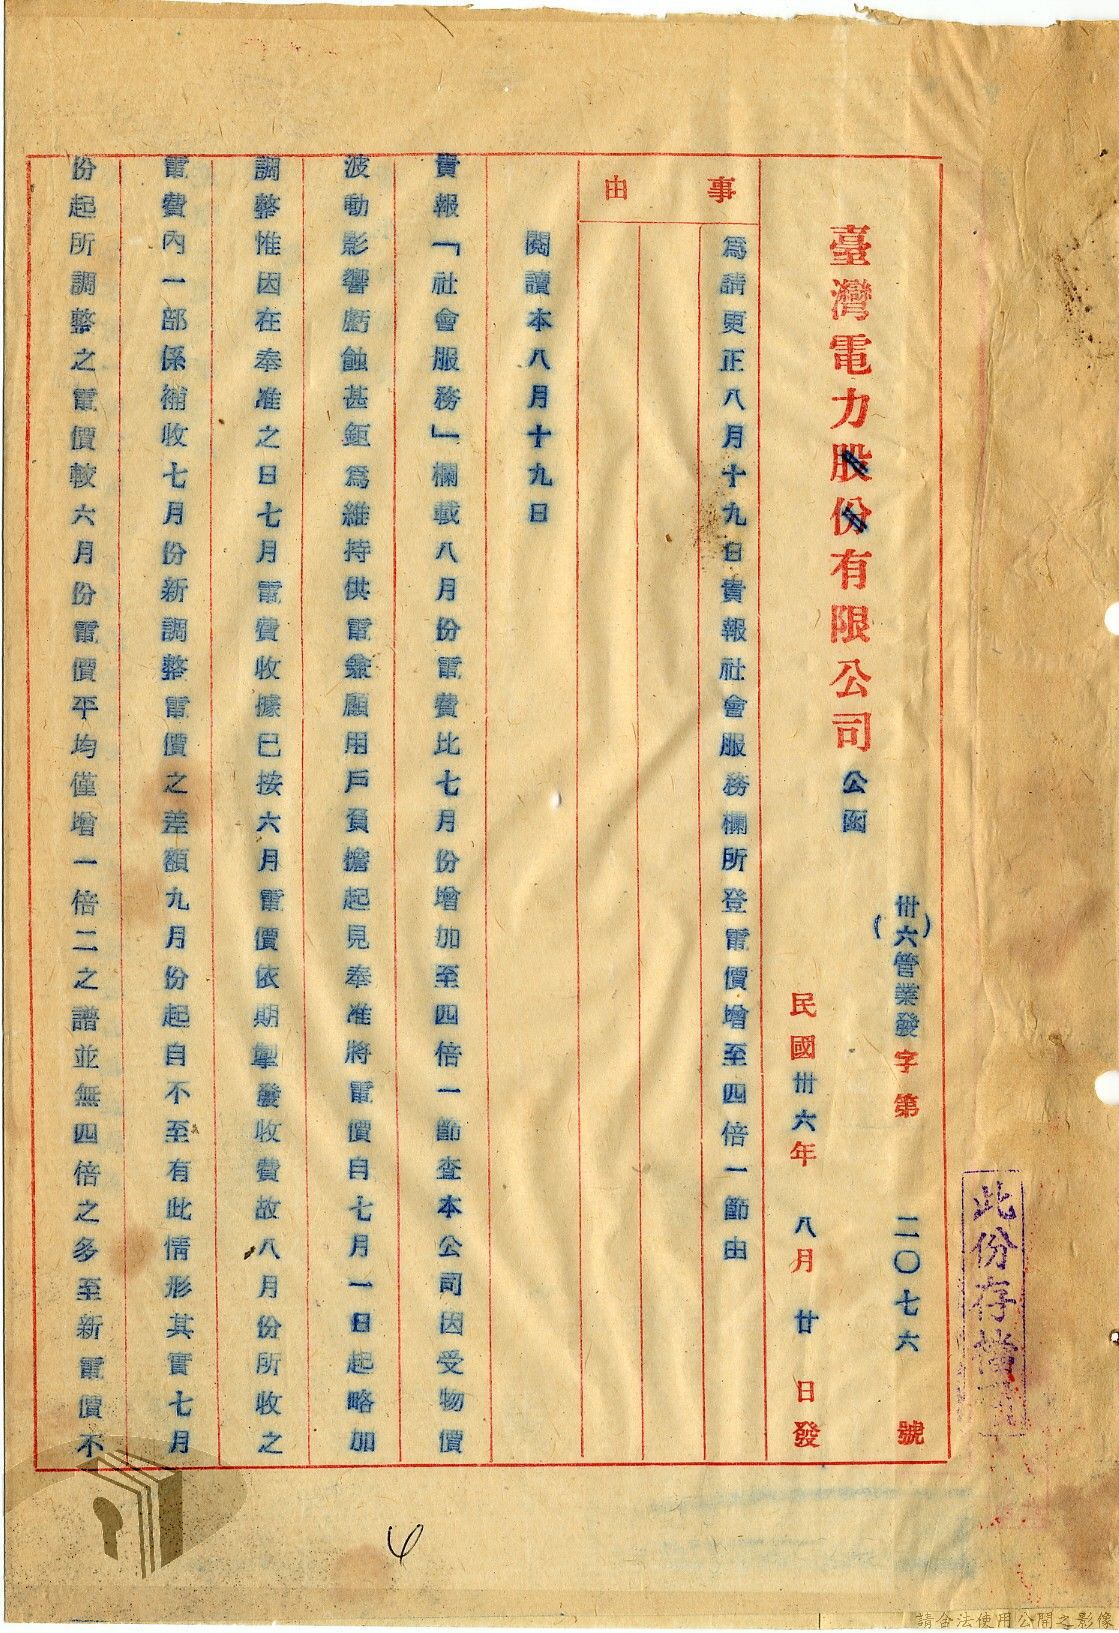 臺灣電力股份有限公司公函
(卅六)管業發字第二〇七六號
民國卅六年八月廿日發
事由
為請更正八月十九日貴報社會服務欄所登電價增至四倍一節由
閱讀本八月十九日
貴報「社會服務」欄載八月份電費比七月份增加至四倍一節查本公司因受物價
波動影響虧蝕甚鉅為維持供電兼顧用戶負擔起見奉准將電價自七月一日起略加
調整惟因在奉准之日七月電費收據已按六月電價依期掣發收費故八月份所收之
電費內一部係補收七月份新調整電價之差額九月份起自不至有此情形其實七月
份起所調整之電價較六月份電價平均僅增一倍二之譜並無四倍之多至新電價不
此份存檔
4
請合法使用公開之影像